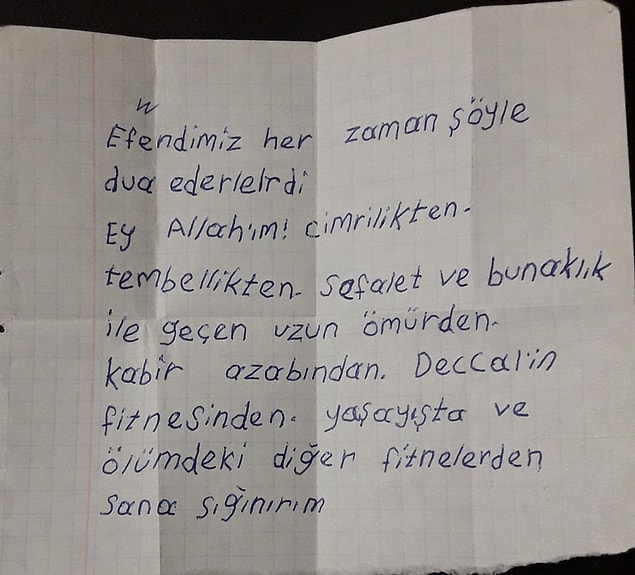 Efendimiz her zaman şöyle
dua ederlerdi
Ey Allah'ım! cimrilikten.
tembellikten. sefalet ve bunaklık
ile geçen uzun ömürden.
kabir azabından. Deccal'in
fitnesinden. yaşayışta ve
ölümdeki diğer fitnelerden
sana sığınırım